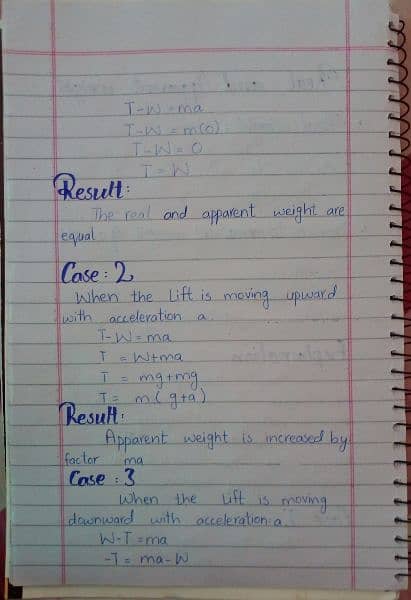 T-W = ma
T-W = m(0)
T-W = 0
T = W
Result:
The real and apparent weight are
equal
Case: 2
When the Lift is moving upward
with acceleration a.
T-W = ma
T = W+ma
T = mg+mg
T = m(g+a)
Result:
Apparent weight is increased by
factor ma
Case: 3
When the Lift is moving
downward with acceleration a.
W-T = ma
-T = ma-W